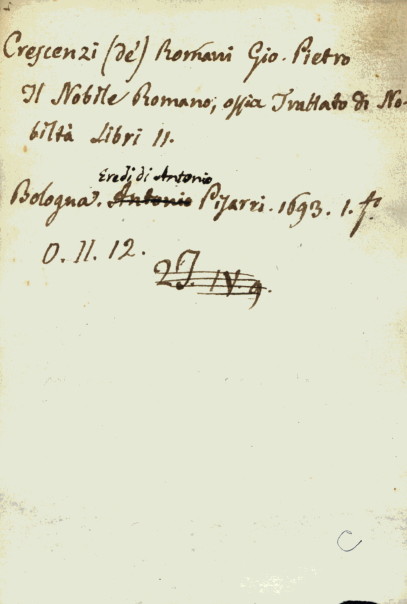 Crescenzi (dé) Romani Gio. Pietro
Il Nobile Romano, ossia Trattato di No-
biltà Libri II.
Eredi di Antonio
Bologna. Antonio Pisarri. 1693. 1. f.º
O. II. 12.
2J. IV. 9.
C